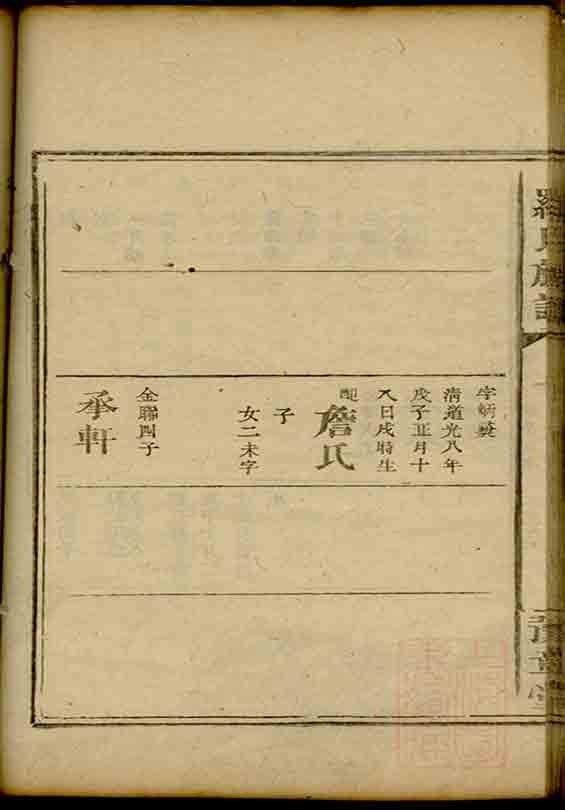 羅氏族譜
字炳奬
清道光八年
戊子正月十
八日戌時生
配
詹氏
子
女二未字
金聯四子
承軒